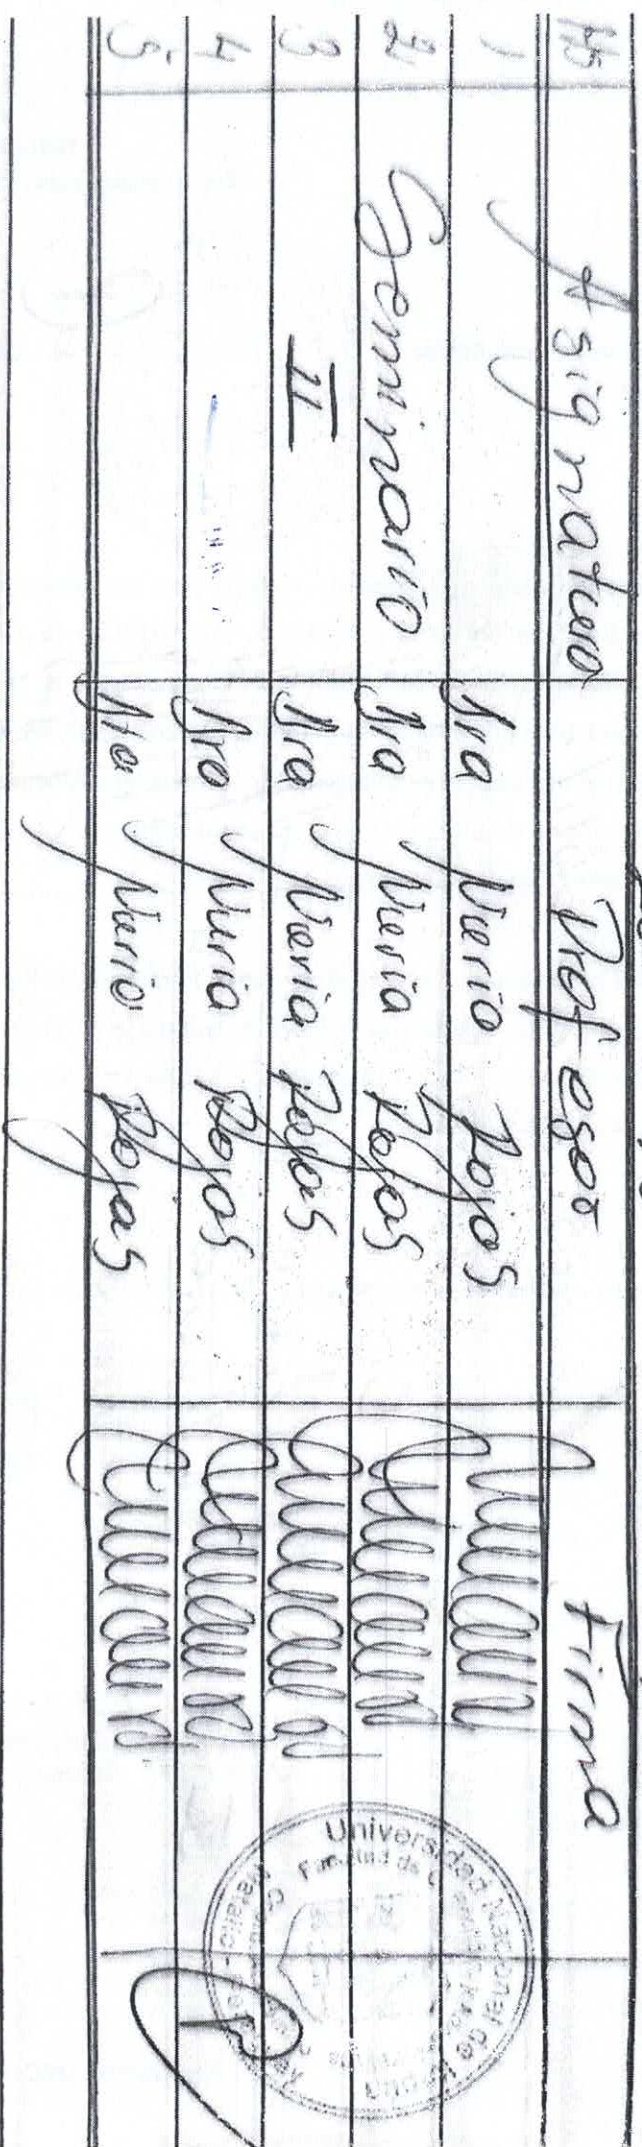 Hs Asignatura Profesor Firma
1 Dra Nuria Rojas
2 Seminario Dra Nuria Rojas
3 II Dra Nuria Rojas
4 Dra Nuria Rojas
5 Dra Nuria Rojas
Universidad Nacional de
Facultad de